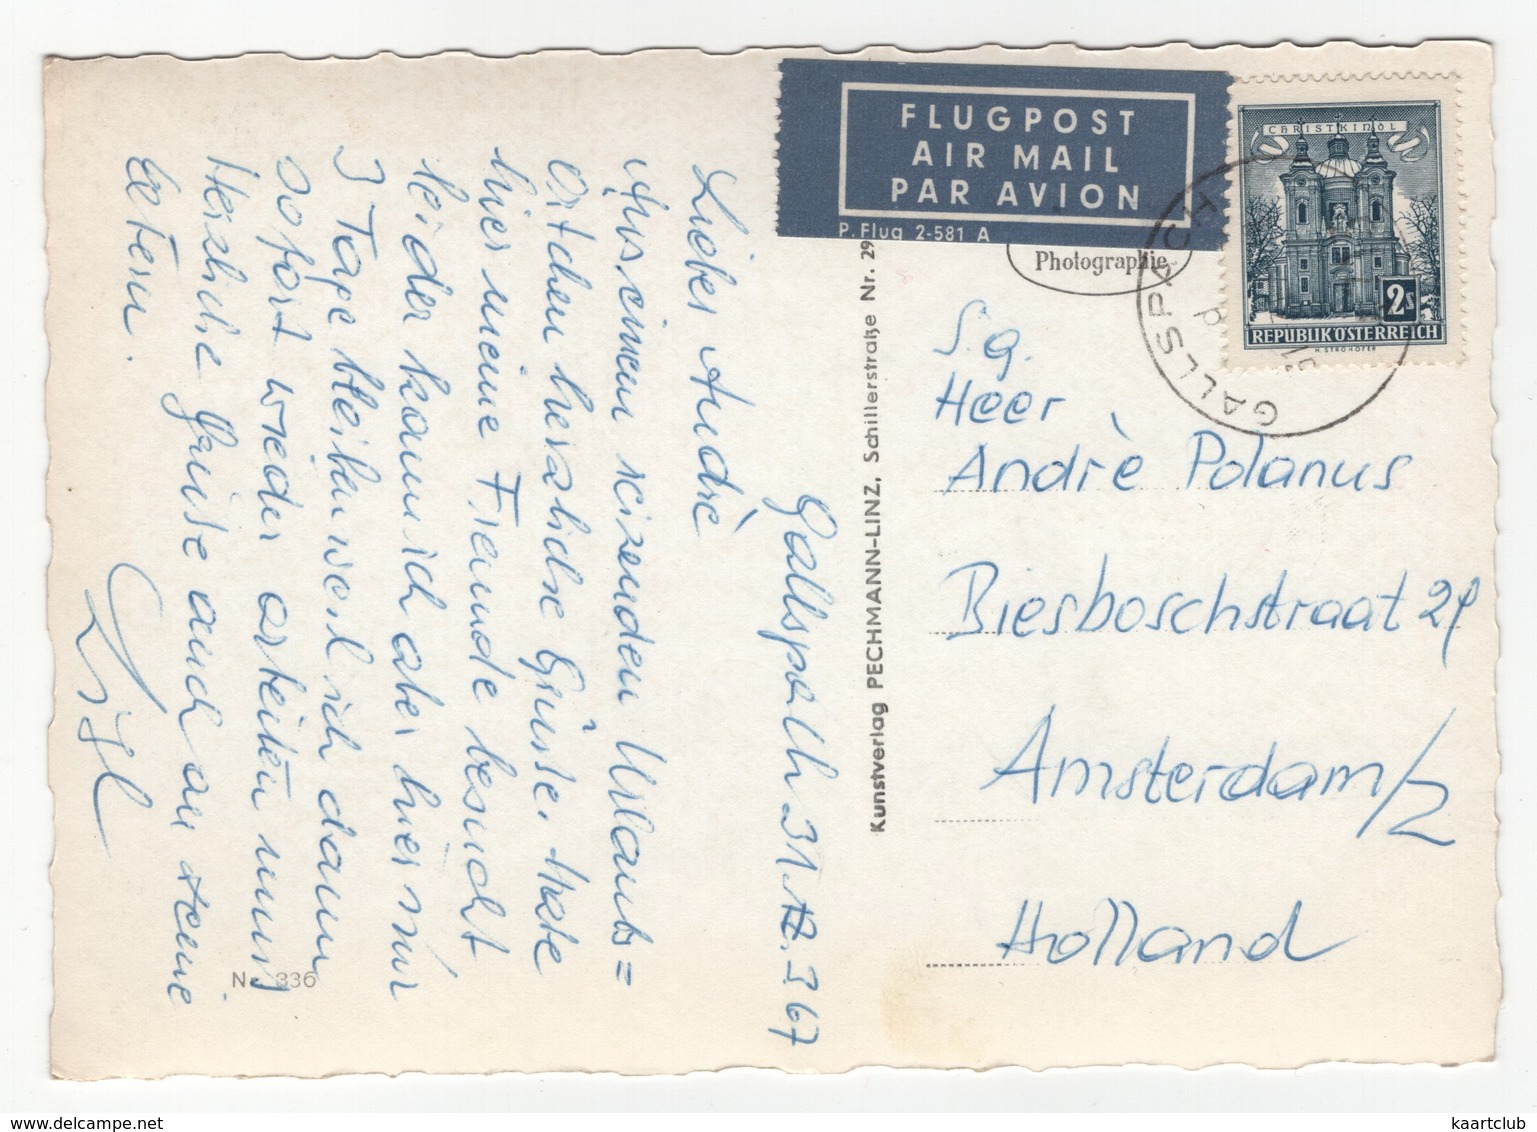 FLUGPOST
AIR MAIL
PAR AVION
P. Flug 2-581 A
CHRISTKINDL
2s
REPUBLIK ÖSTERREICH
H. STROHOFER
GALLSPACH
Photographie
Kunstverlag PECHMANN-LINZ, Schillerstraße Nr. 29
Gallspach 31. 3 67
Lieber Andrè
Aus einem reizenden Urlaubs=
örtchen herzliche Grüsse. Habe
hier meine Freunde besucht
leider kann ich aber hier nur
3 Tage bleiben weil ich dann
sofort wieder arbeiten muss
Herzliche Grüsse auch an deine
Eltern.
S.g.
Heer
Andrè Polanus
Biesboschstraat 29
Amsterdam/Z
Holland
N. 336
kaartclub